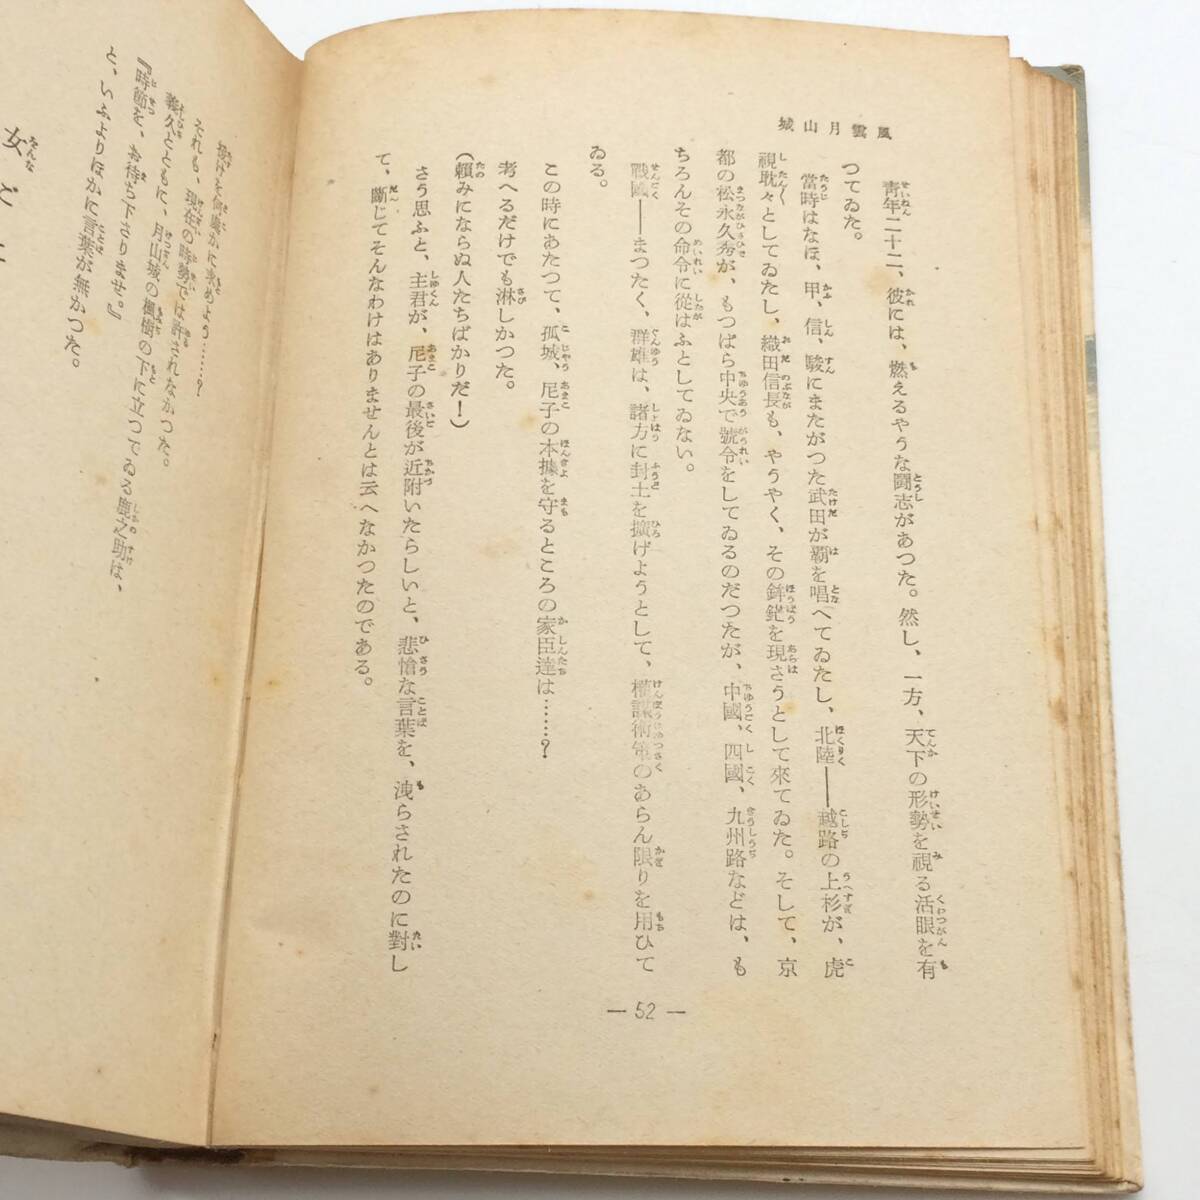 風雲月山城
青年二十二、彼には、燃えるやうな闘志があつた。然し、一方、天下の形勢を視る活眼を有
つてゐた。
當時はなほ、甲、信、駿にまたがつた武田が覇を唱へてゐたし、北陸――越路の上杉が、虎
視眈々としてゐたし、織田信長も、やうやく、その鉾鋩を現さうとして來てゐた。そして、京
都の松永久秀が、もつぱら中央で號令をしてゐるのだつたが、中國、四國、九州路などは、も
ちろんその命令に從はふとしてゐない。
戰國――まつたく、群雄は、諸方に封土を擴げようとして、權謀術策のあらん限りを用ひて
ゐる。
この時にあたつて、孤城、尼子の本據を守るところの家臣達は……？
考へるだけでも淋しかつた。
（賴みにならぬ人たちばかりだ！）
さう思ふと、主君が、尼子の最後が近附いたらしいと、悲愴な言葉を、洩らされたのに對し
て、斷じてそんなわけはありませんとは云へなかつたのである。
― 52 ―
援けを何處かに求めよう……？
それも、現在の時勢では許されなかつた。
義久とともに、月山城の楓樹の下に立つてゐる鹿之助は、
『時節を、お待ち下さりませ。』
と、いふよりほかに言葉が無かつた。
女